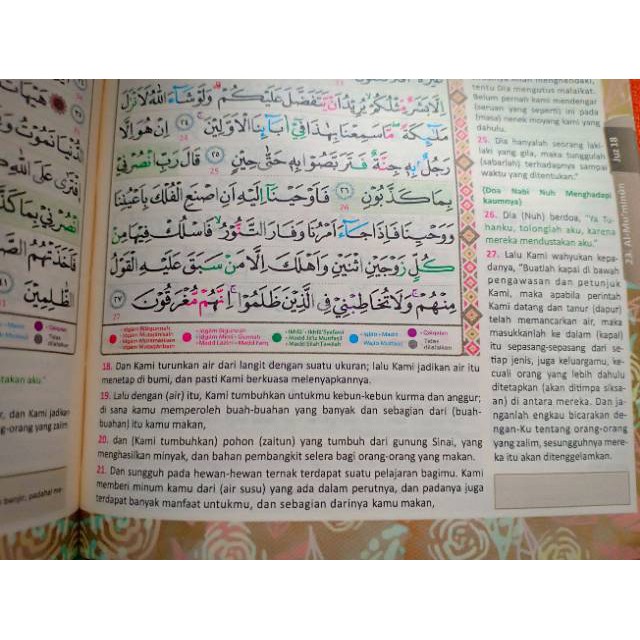 إِلَّا بَشَرٌ مِّثْلُكُمْ يُرِيدُ أَن يَتَفَضَّلَ عَلَيْكُمْ وَلَوْ شَاءَ اللَّهُ لَأَنزَلَ
مَلَٰئِكَةً مَّا سَمِعْنَا بِهَٰذَا فِي آبَائِنَا الْأَوَّلِينَ ٢٤ إِنْ هُوَ إِلَّا
رَجُلٌ بِهِ جِنَّةٌ فَتَرَبَّصُوا بِهِ حَتَّىٰ حِينٍ ٢٥ قَالَ رَبِّ انصُرْنِي
بِمَا كَذَّبُونِ ٢٦ فَأَوْحَيْنَا إِلَيْهِ أَنِ اصْنَعِ الْفُلْكَ بِأَعْيُنِنَا
وَوَحْيِنَا فَإِذَا جَاءَ أَمْرُنَا وَفَارَ التَّنُّورُ فَاسْلُكْ فِيهَا مِن
كُلٍّ زَوْجَيْنِ اثْنَيْنِ وَأَهْلَكَ إِلَّا مَن سَبَقَ عَلَيْهِ الْقَوْلُ
مِنْهُمْ وَلَا تُخَاطِبْنِي فِي الَّذِينَ ظَلَمُوا إِنَّهُم مُّغْرَقُونَ ٢٧
18. Dan Kami turunkan air dari langit dengan suatu ukuran; lalu Kami jadikan air itu
menetap di bumi, dan pasti Kami berkuasa melenyapkannya.
19. Lalu dengan (air) itu, Kami tumbuhkan untukmu kebun-kebun kurma dan anggur;
di sana kamu memperoleh buah-buahan yang banyak dan sebagian dari (buah-
buahan) itu kamu makan,
20. dan (Kami tumbuhkan) pohon (zaitun) yang tumbuh dari gunung Sinai, yang
menghasilkan minyak, dan bahan pembangkit selera bagi orang-orang yang makan.
21. Dan sungguh pada hewan-hewan ternak terdapat suatu pelajaran bagimu. Kami
memberi minum kamu dari (air susu) yang ada dalam perutnya, dan padanya juga
terdapat banyak manfaat untukmu, dan sebagian darinya kamu makan,
tentu Dia mengutus malaikat.
Belum pernah kami mendengar
(seruan yang seperti) ini pada
(masa) nenek moyang kami yang
dahulu.
25. Dia hanyalah seorang laki-
laki yang gila, maka tunggulah
(sabarlah) terhadapnya sampai
waktu yang ditentukan."
(Doa Nabi Nuh Menghadapi
kaumnya)
26. Dia (Nuh) berdoa, "Ya Tu-
hanku, tolonglah aku, karena
mereka mendustakan aku."
27. Lalu Kami wahyukan kepa-
danya, "Buatlah kapal di bawah
pengawasan dan petunjuk
Kami, maka apabila perintah
Kami datang dan tanur (dapur)
telah memancarkan air, maka
masukkanlah ke dalam (kapal)
itu sepasang-sepasang dari se-
tiap jenis, juga keluargamu, ke-
cuali orang yang lebih dahulu
ditetapkan (akan ditimpa siksa-
an) di antara mereka. Dan ja-
nganlah engkau bicarakan de-
ngan-Ku tentang orang-orang
yang zalim, sesungguhnya mere-
ka itu akan ditenggelamkan.
Juz 18
23. Al-Mu'minûn